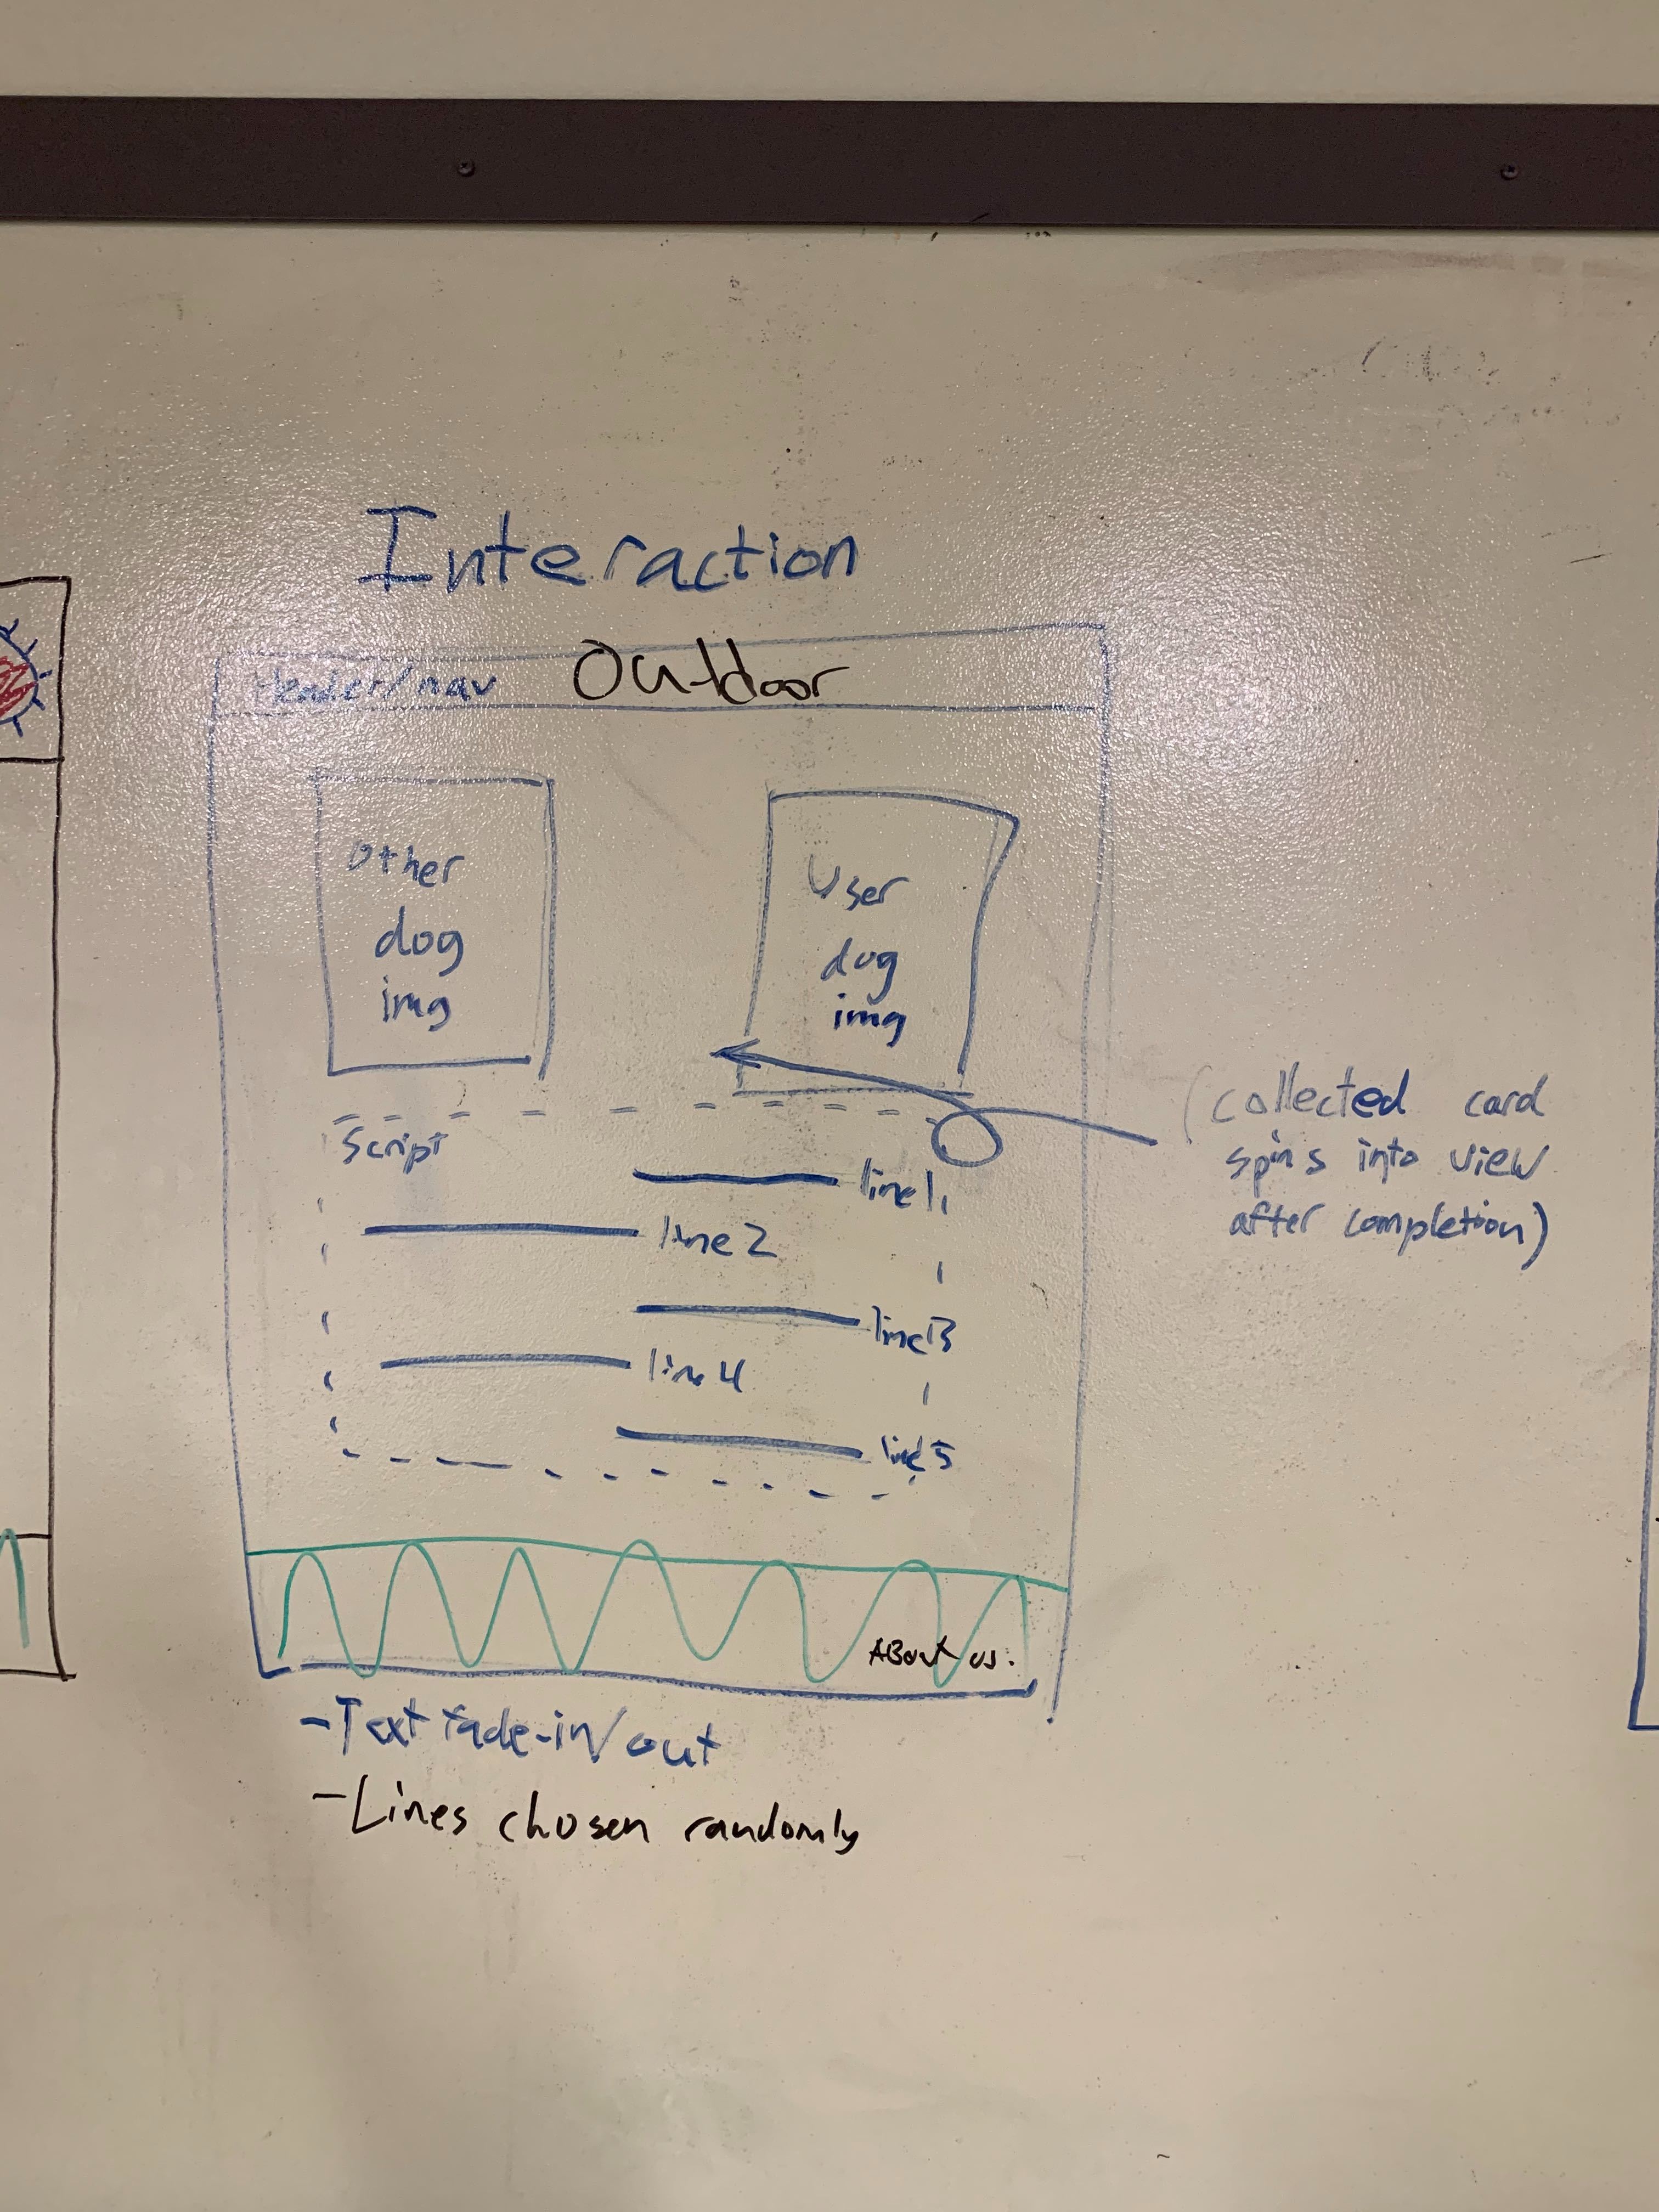 Interaction
Header/nav Outdoor
Other
dog
img
User
dog
img
(collected card
spins into view
after completion)
Script
line 1
line 2
line 3
line 4
line 5
ABout us.
-Text fade-in/out
-Lines chosen randomly